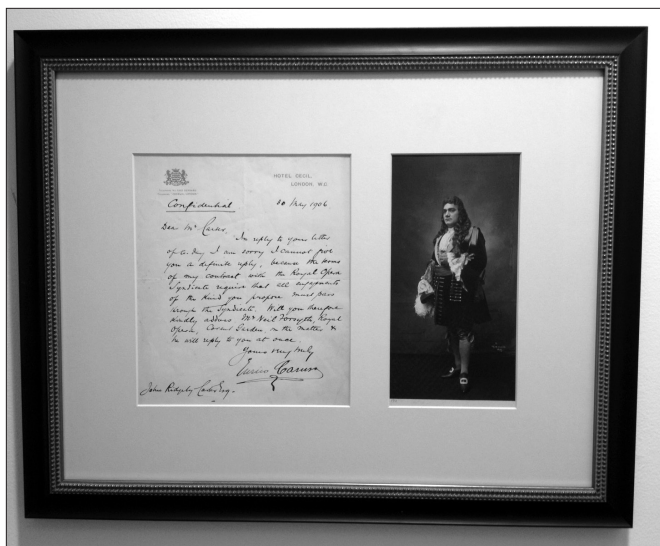 HOTEL CECIL.
LONDON, W.C.
Confidential
May 1906
Dear Mr Carter,
In reply to your letter
of to-day I am sorry I cannot give
you a definite reply, because the terms
of my contract with the Royal Opera
Syndicate require that all engagements
of the kind you propose must pass
through the Syndicate. Will you therefore
kindly address Mr Neil Forsyth, Royal
Opera, Covent Garden on the matter &
he will reply to you at once.
Yours very truly
Enrico Caruso
John Ridgely Carter Esq.